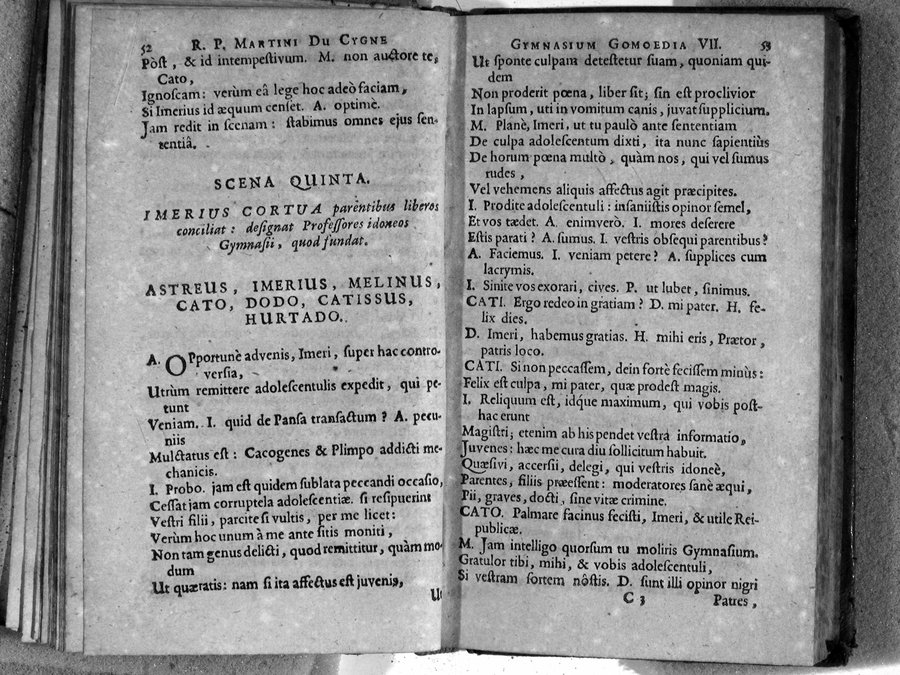 52 R. P. MARTINI DU CYGNE
Pòst, & id intempestivum. M. non auctore te,
Cato,
Ignoscam: verùm eâ lege hoc adeò faciam,
Si Imerius id æquum censet. A. optimè.
Jam redit in scenam: stabimus omnes ejus sen-
tentiâ.
SCENA QUINTA.
IMERIUS CORTUA parentibus liberos
conciliat: designat Professores idoneos
Gymnasii, quod fundat.
ASTREUS, IMERIUS, MELINUS,
CATO, DODO, CATISSUS,
HURTADO.
A. OPportunè advenis, Imeri, super hac contro-
versia,
Utrùm remittere adolescentulis expedit, qui pe-
tunt
Veniam. I. quid de Pansa transactum? A. pecu-
niis
Mulctatus est: Cacogenes & Plimpo addicti me-
chanicis.
I. Probo. jam est quidem sublata peccandi occasio,
Cessat jam corruptela adolescentiæ. si resipuerint
Vestri filii, parcite si vultis, per me licet:
Verùm hoc unum à me ante sitis moniti,
Non tam genus delicti, quod remittitur, quàm mo-
dum
Ut quæratis: nam si ita affectus est juvenis,
Ut
GYMNASIUM GOMOEDIA VII. 53
Ut sponte culpam detestetur suam, quoniam qui-
dem
Non proderit pœna, liber sit; sin est proclivior
In lapsum, uti in vomitum canis, juvat supplicium.
M. Planè, Imeri, ut tu paulò ante sententiam
De culpa adolescentum dixti, ita nunc sapientiùs
De horum pœna multò, quàm nos, qui vel sumus
rudes,
Vel vehemens aliquis affectus agit præcipites.
I. Prodite adolescentuli: insaniistis opinor semel,
Et vos tædet. A. enimverò. I. mores deserere
Estis parati? A. sumus. I. vestris obsequi parentibus?
A. Faciemus. I. veniam petere? A. supplices cum
lacrymis.
I. Sinite vos exorari, cives. P. ut lubet, sinimus.
CATI. Ergo redeo in gratiam? D. mi pater. H. fe-
lix dies.
D. Imeri, habemus gratias. H. mihi eris, Prætor,
patris loco.
CATI. Si non peccassem, dein fortè fecissem minùs:
Felix est culpa, mi pater, quæ prodest magis.
I. Reliquum est, idque maximum, qui vobis post-
hac erunt
Magistri; etenim ab his pendet vestra informatio,
Juvenes: hæc me cura diu sollicitum habuit.
Quæsivi, accersii, delegi, qui vestris idoneè,
Parentes, filiis præessent: moderatores sanè æqui,
Pii, graves, docti, sine vitæ crimine.
CATO. Palmare facinus fecisti, Imeri, & utile Rei-
publicæ.
M. Jam intelligo quorsum tu moliris Gymnasium.
Gratulor tibi, mihi, & vobis adolescentuli,
Si vestram sortem nôstis. D. sunt illi opinor nigri
C 3 Patres,